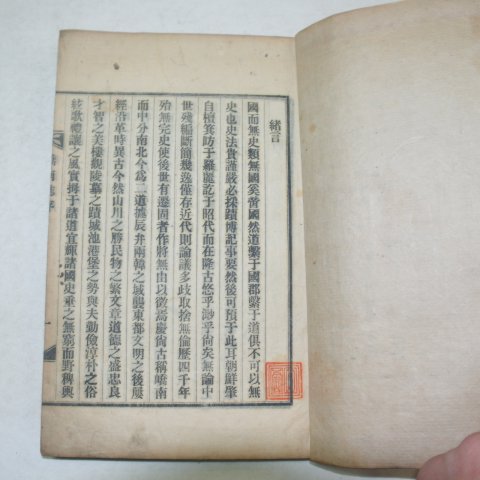 緒言
國而無史類無國奚啻國然道繫于國郡繫于道俱不可以無
史也史法貴謹嚴必採蹟博記事要然後可預于此耳朝鮮肇
自檀箕昉于羅麗訖于昭代而在隆古悠乎渺乎尙矣無論中
世殘編斷簡幾逸僅存近代則論議多歧取捨無倫歷四千年
殆無完史使後世有遷固者作將無由以徵焉慶尙古稱嶠南
而中分南北今爲二道據辰弁兩韓之域襲東都文明之後屢
經沿革時異古今然山川之勝民物之繁文章道德之盛忠良
才智之美樓觀陵墓之蹟城池港堡之勢與夫勤儉淳朴之俗
絃歌禮讓之風實拇于諸道宜輝諸國史垂之無窮而野稗輿